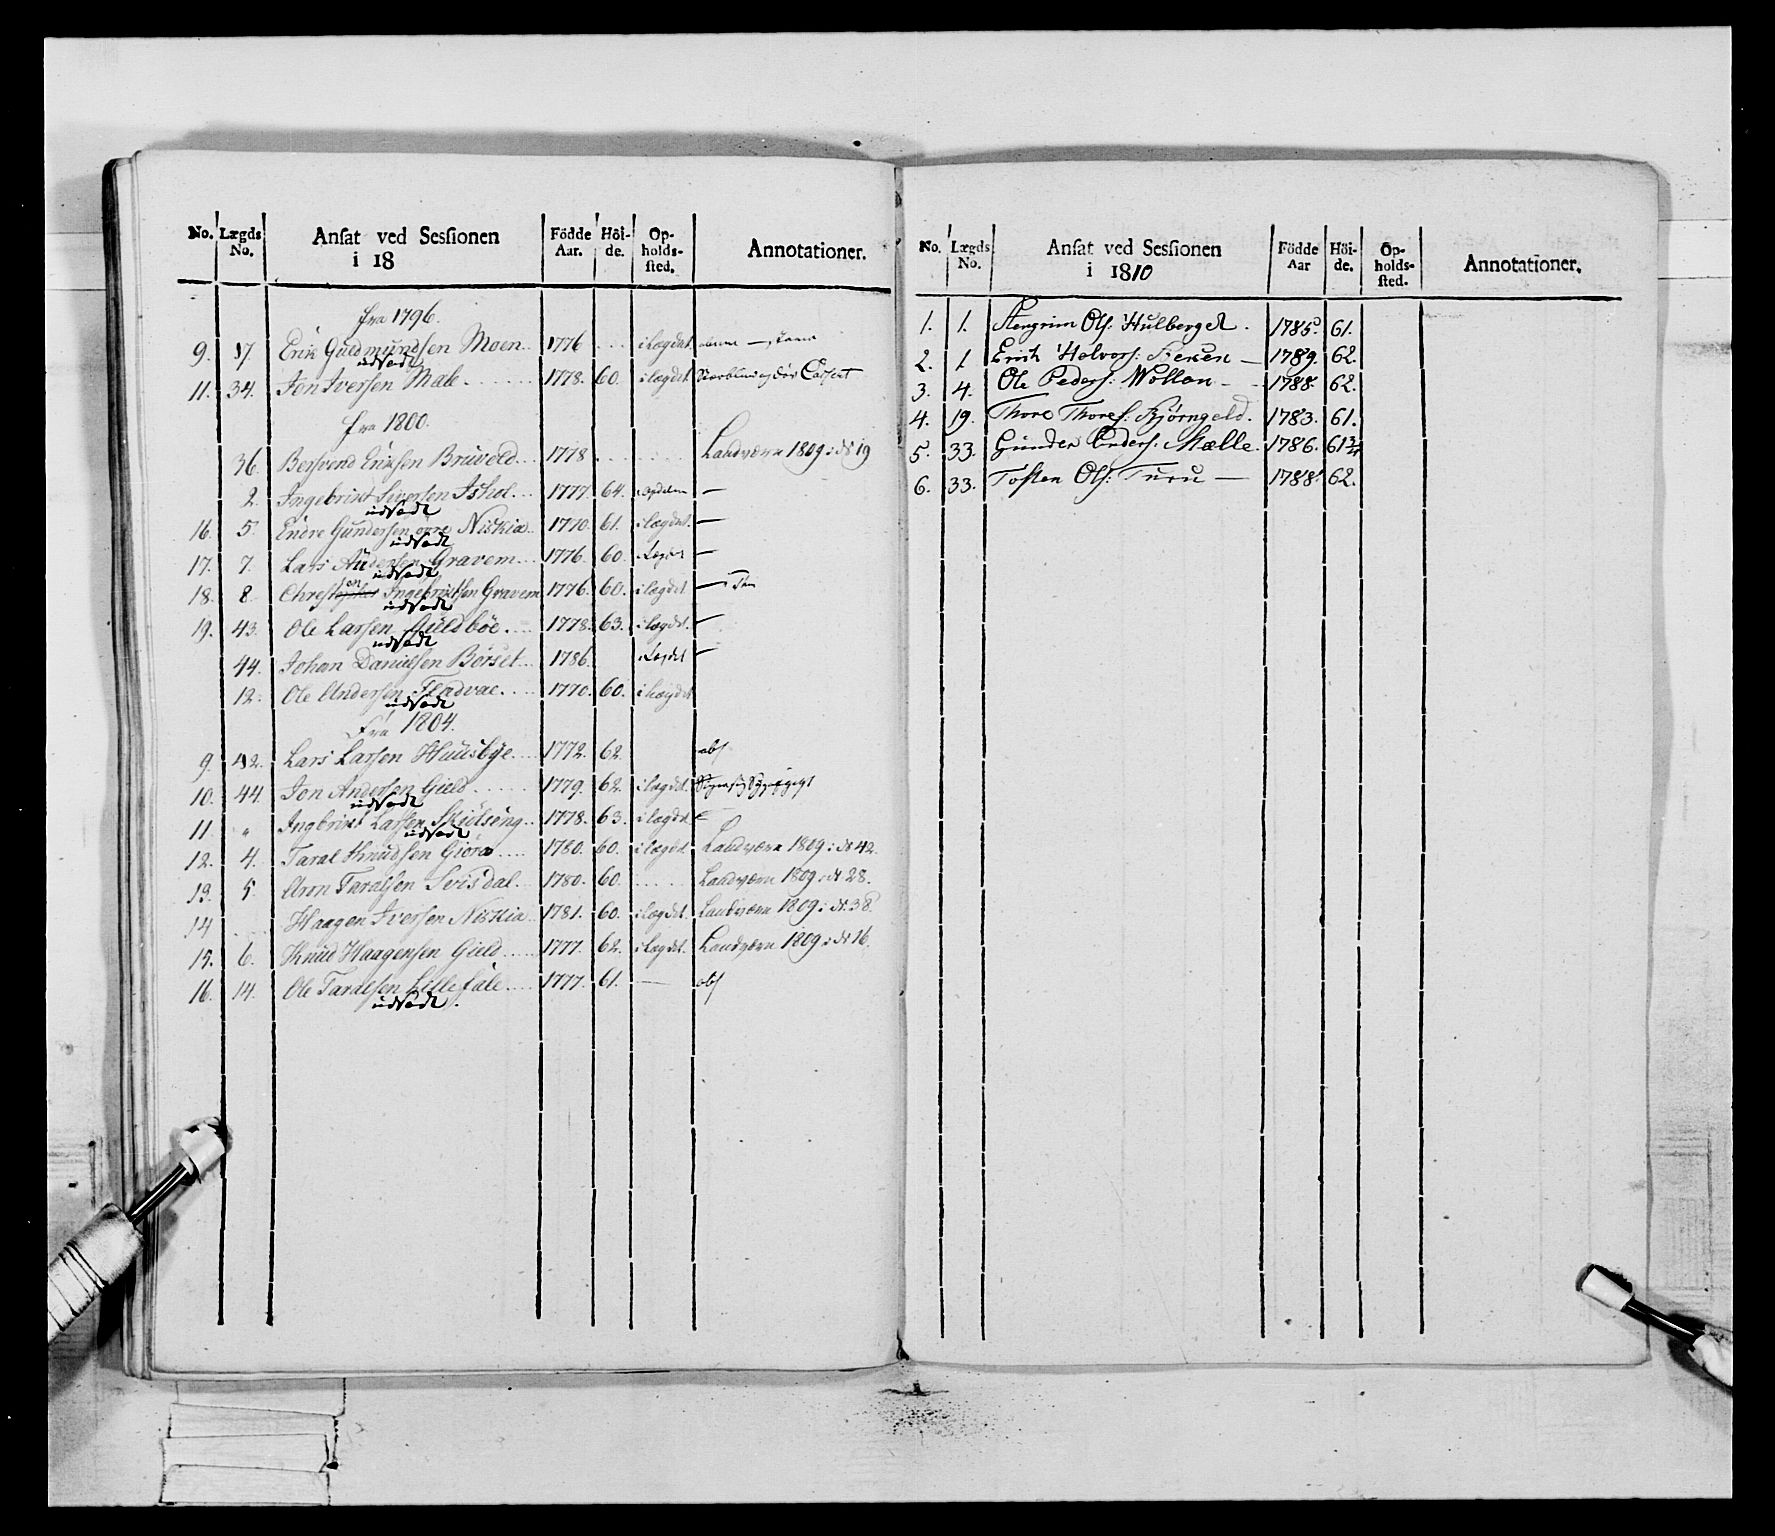 No. Lægds No. Ansat ved Sessionen i 18 Födde Aar. Höi-de. Op-holds-sted. Annotationer.
fra 1796.
9. 17. Erik Guldmundsen Moen 1776 i Lægdet.
udsadt
11. 34. Jon Iversen Mæle 1778. 60. i lægdet.
fra 1800.
36. Bersvend Eriksen Brüvold 1778 Landværn 1809 i № 19
2. Ingebrikt Siversen Ishol 1777. 64. —
udsadt
16. 5. Endre Gundersen øvre Niskia 1770 61. i Lægdet. —
udsadt
17. 7. Lars Andersen Gravem 1776. 60. —
udsadt
18. 8 Christen Ingebriktsen Gravem 1776. 60. i Lægdet —
udsadt
19. 43. Ole Larsen Guldbøe 1778. 63. i Lægdet. —
udsadt
44. Johan Danielsen Børset 1786. Lægdet —
12. Ole Andersen Fladvæ 1770. 60. i Lægdet
udsadt
Fra 1804.
9. 42. Lars Larsen Huusbye 1772. 62. obs
10. 44. Jon Andersen Gield 1779. 62. i Lægdet.
udsadt
11. " Ingbrikt Larsen 1778. 63. i Lægdet.
udsadt
12. 4. Taral Knudsen Giøra 1780. 60. i Lægdet. Landværn 1809 i № 42.
13. 5 Aron Taralsen Svisdal 1780. 60. Landværn 1809 i № 28.
14 Haagen Iversen Niskia 1781. 60. i Lægdet. Landværn 1809 i № 38.
15. 6. Knud Haagensen Gield 1777. 62. i Lægdet. Landværn 1809 i № 16.
16. 14. Ole Taralsen Lillefale 1777. 61. — obs
udsadt.
No. Lægds No. Ansat ved Sessionen i 1810 Födde Aar Höi-de. Op-holds-sted. Annotationer.
1. 1. Stengrim Ols: Hulberget. 1785. 61.
2. 1 Erich Holvors: — 1789. 62.
3. 4. Ole Peders: Wollan — 1788. 62.
4. 19. Thore Thores: Biørngeld. 1783. 61.
5. 33. Gunder Enders: Mælle. 1786. 61¾
6. 33. Tosten Ols: Turu — 1788. 62.